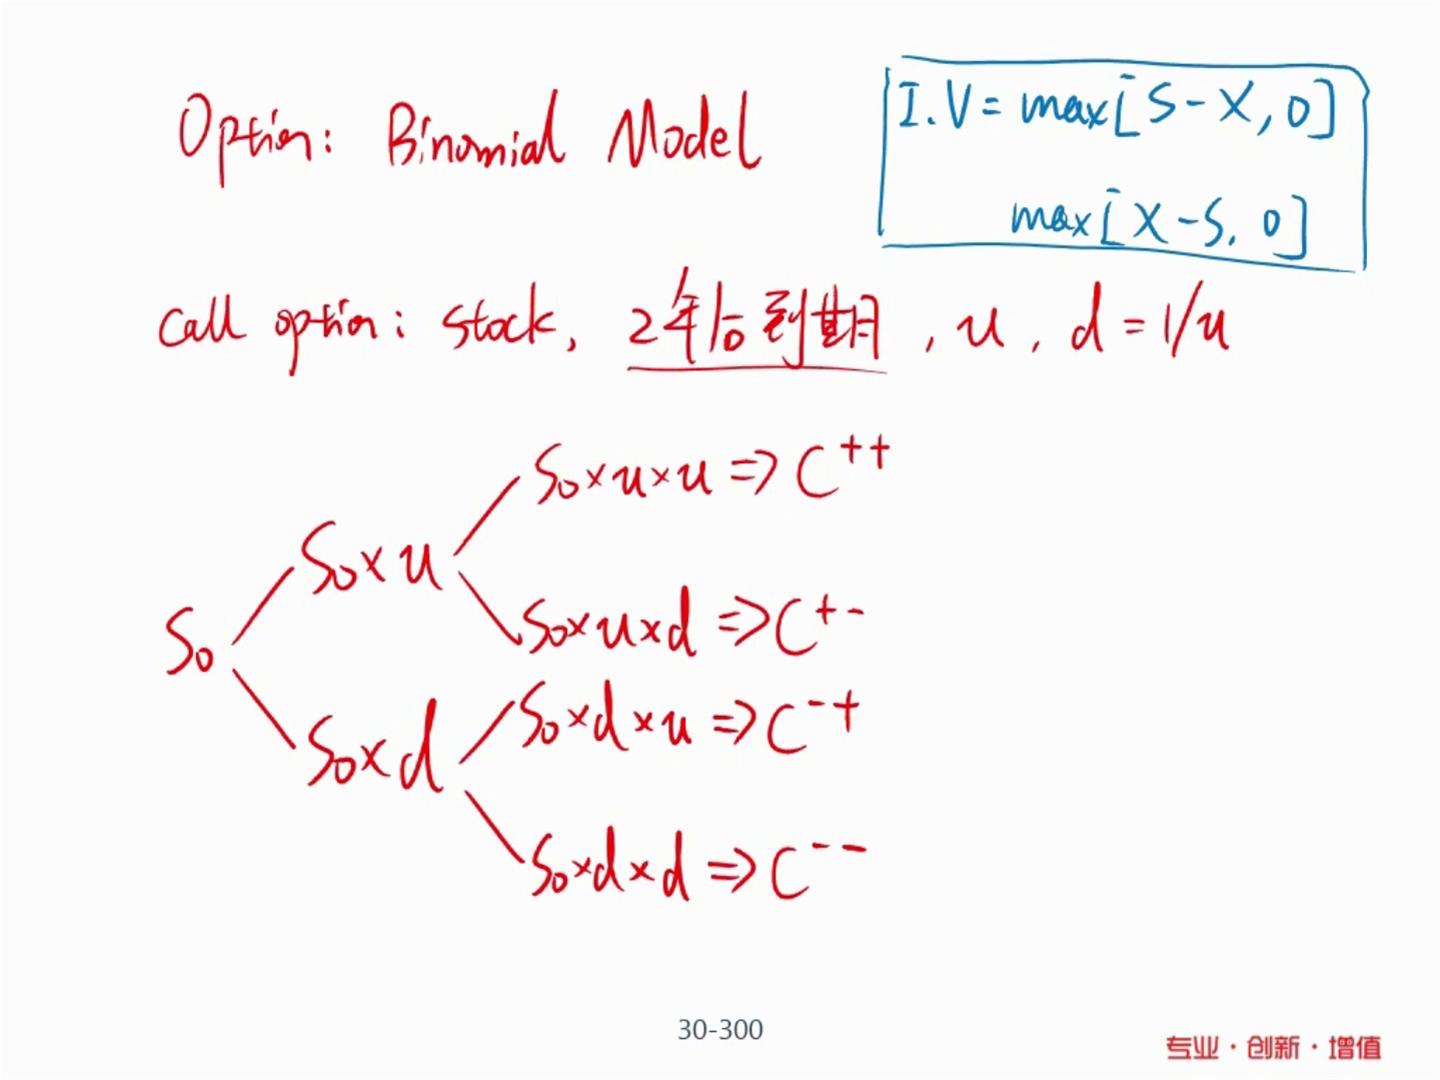 Option: Binomial Model
I.V = max[S-X, 0]
max[X-S, 0]
Call option: stock, 2年后到期, u, d = 1/u
S₀×u×u ⇒ C⁺⁺
S₀×u
S₀×u×d ⇒ C⁺⁻
S₀
S₀×d×u ⇒ C⁻⁺
S₀×d
S₀×d×d ⇒ C⁻⁻
30-300
专业·创新·增值